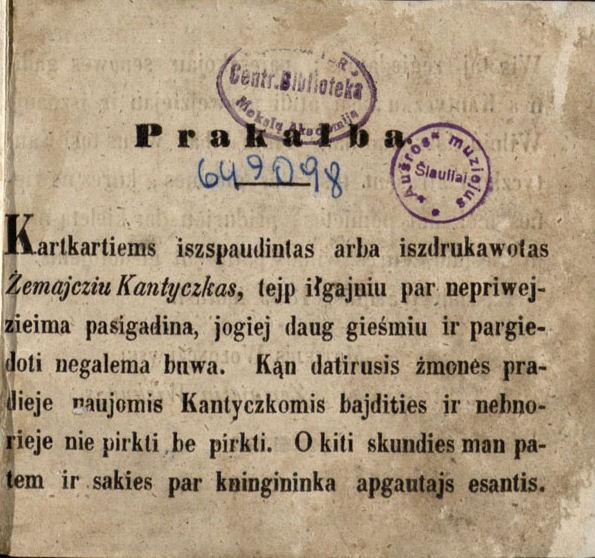 Centr. Biblioteka
Mokslų Akademija
Prakałba.
649098
„Aušros“ muziejus
Šiauliai
Kartkartiems iszspaudintas arba iszdrukawotas
Żemajcziu Kantyczkas, tejp iłgajniu par nepriwej-
zieima pasigadina, jogiej daug gieśmiu ir pargie-
doti negalema buwa. Kąn datirusis żmonės pra-
dieje naujomis Kantyczkomis bajdities ir nebno-
rieje nie pirkti be pirkti. O kiti skundies man pa-
tem ir sakies par kningininka apgautajs esantis.